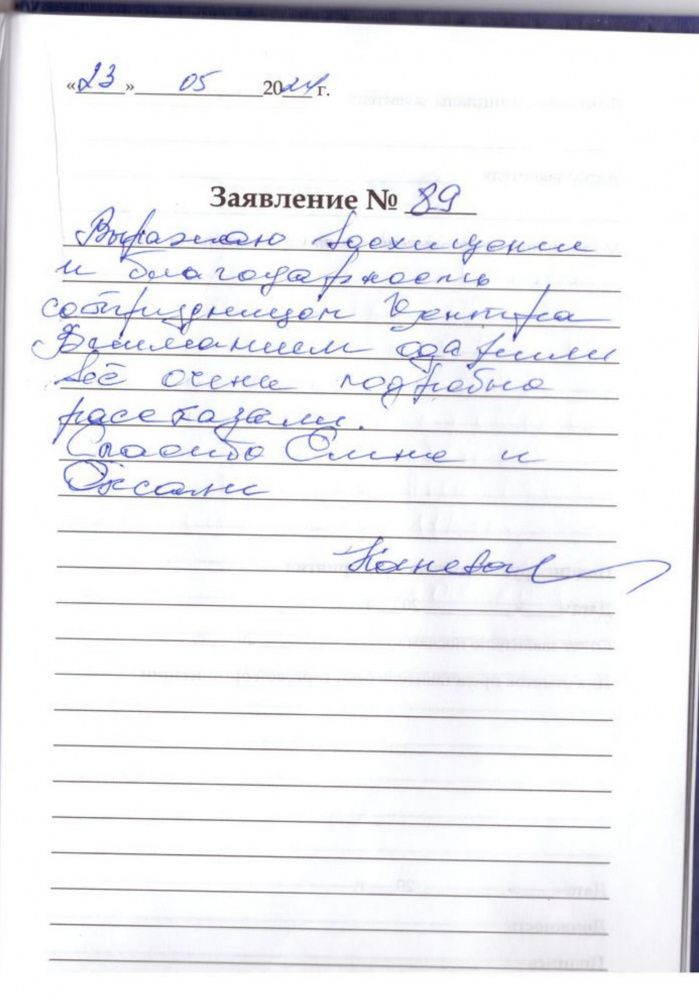 «23» 05 2024 г.
Заявление № 89
Выражаю восхищение
и благодарность
сотрудницам Центра
Вниманием одарили
всё очень подробно
рассказали.
Спасибо Елине и
Оксане
Канева